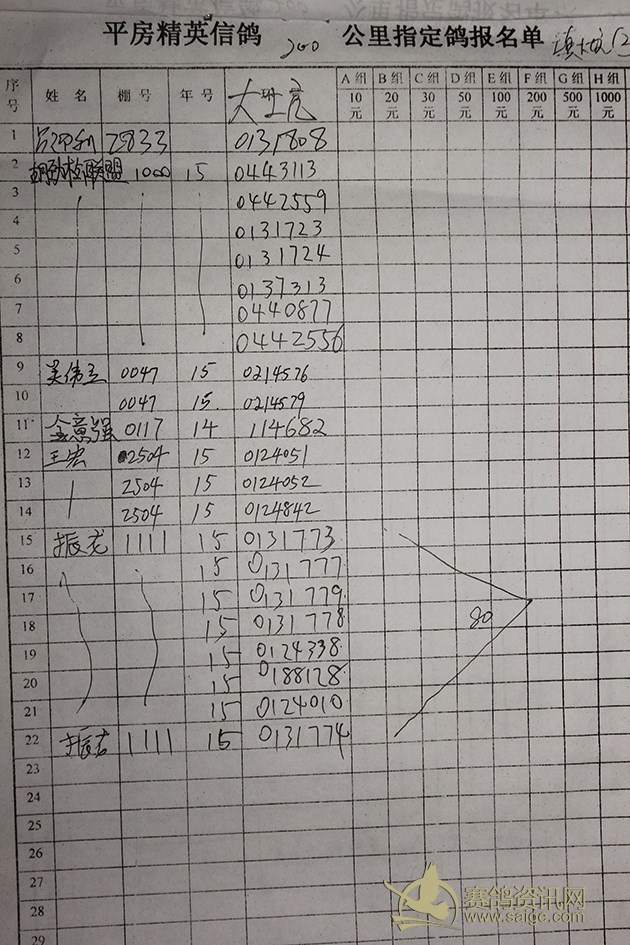 平房精英信鸽 200 公里指定鸽报名单
序号 姓 名 棚 号 年 号 A 组 B 组 C 组 D 组 E 组 F 组 G 组 H 组
10元 20元 30元 50元 100元 200元 500元 1000元
1 2833 0131808
2 联盟 1000 15 0443113
3 0442559
4 0131723
5 0131724
6 0137313
7 0440877
8 0442556
9 吴伟 0047 15 0214576
10 0047 15 0214579
11 强 0117 14 114682
12 王宏 2504 15 0124051
13 2504 15 0124052
14 2504 15 0124842
15 振龙 1111 15 0131773
16 15 0131777
17 15 0131779
18 15 0131778 80
19 15 0124338
20 15 0188128
21 15 0124010
22 振龙 1111 15 0131774
23
24
25
26
27
28
29
赛鸽资讯网
www.saige.com